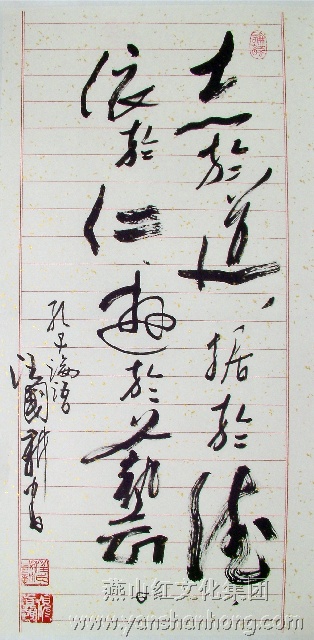 志於道，据於德
依於仁、遊於藝
孔子論語
汪國新书
燕山红文化集团
www.yanshanhong.com